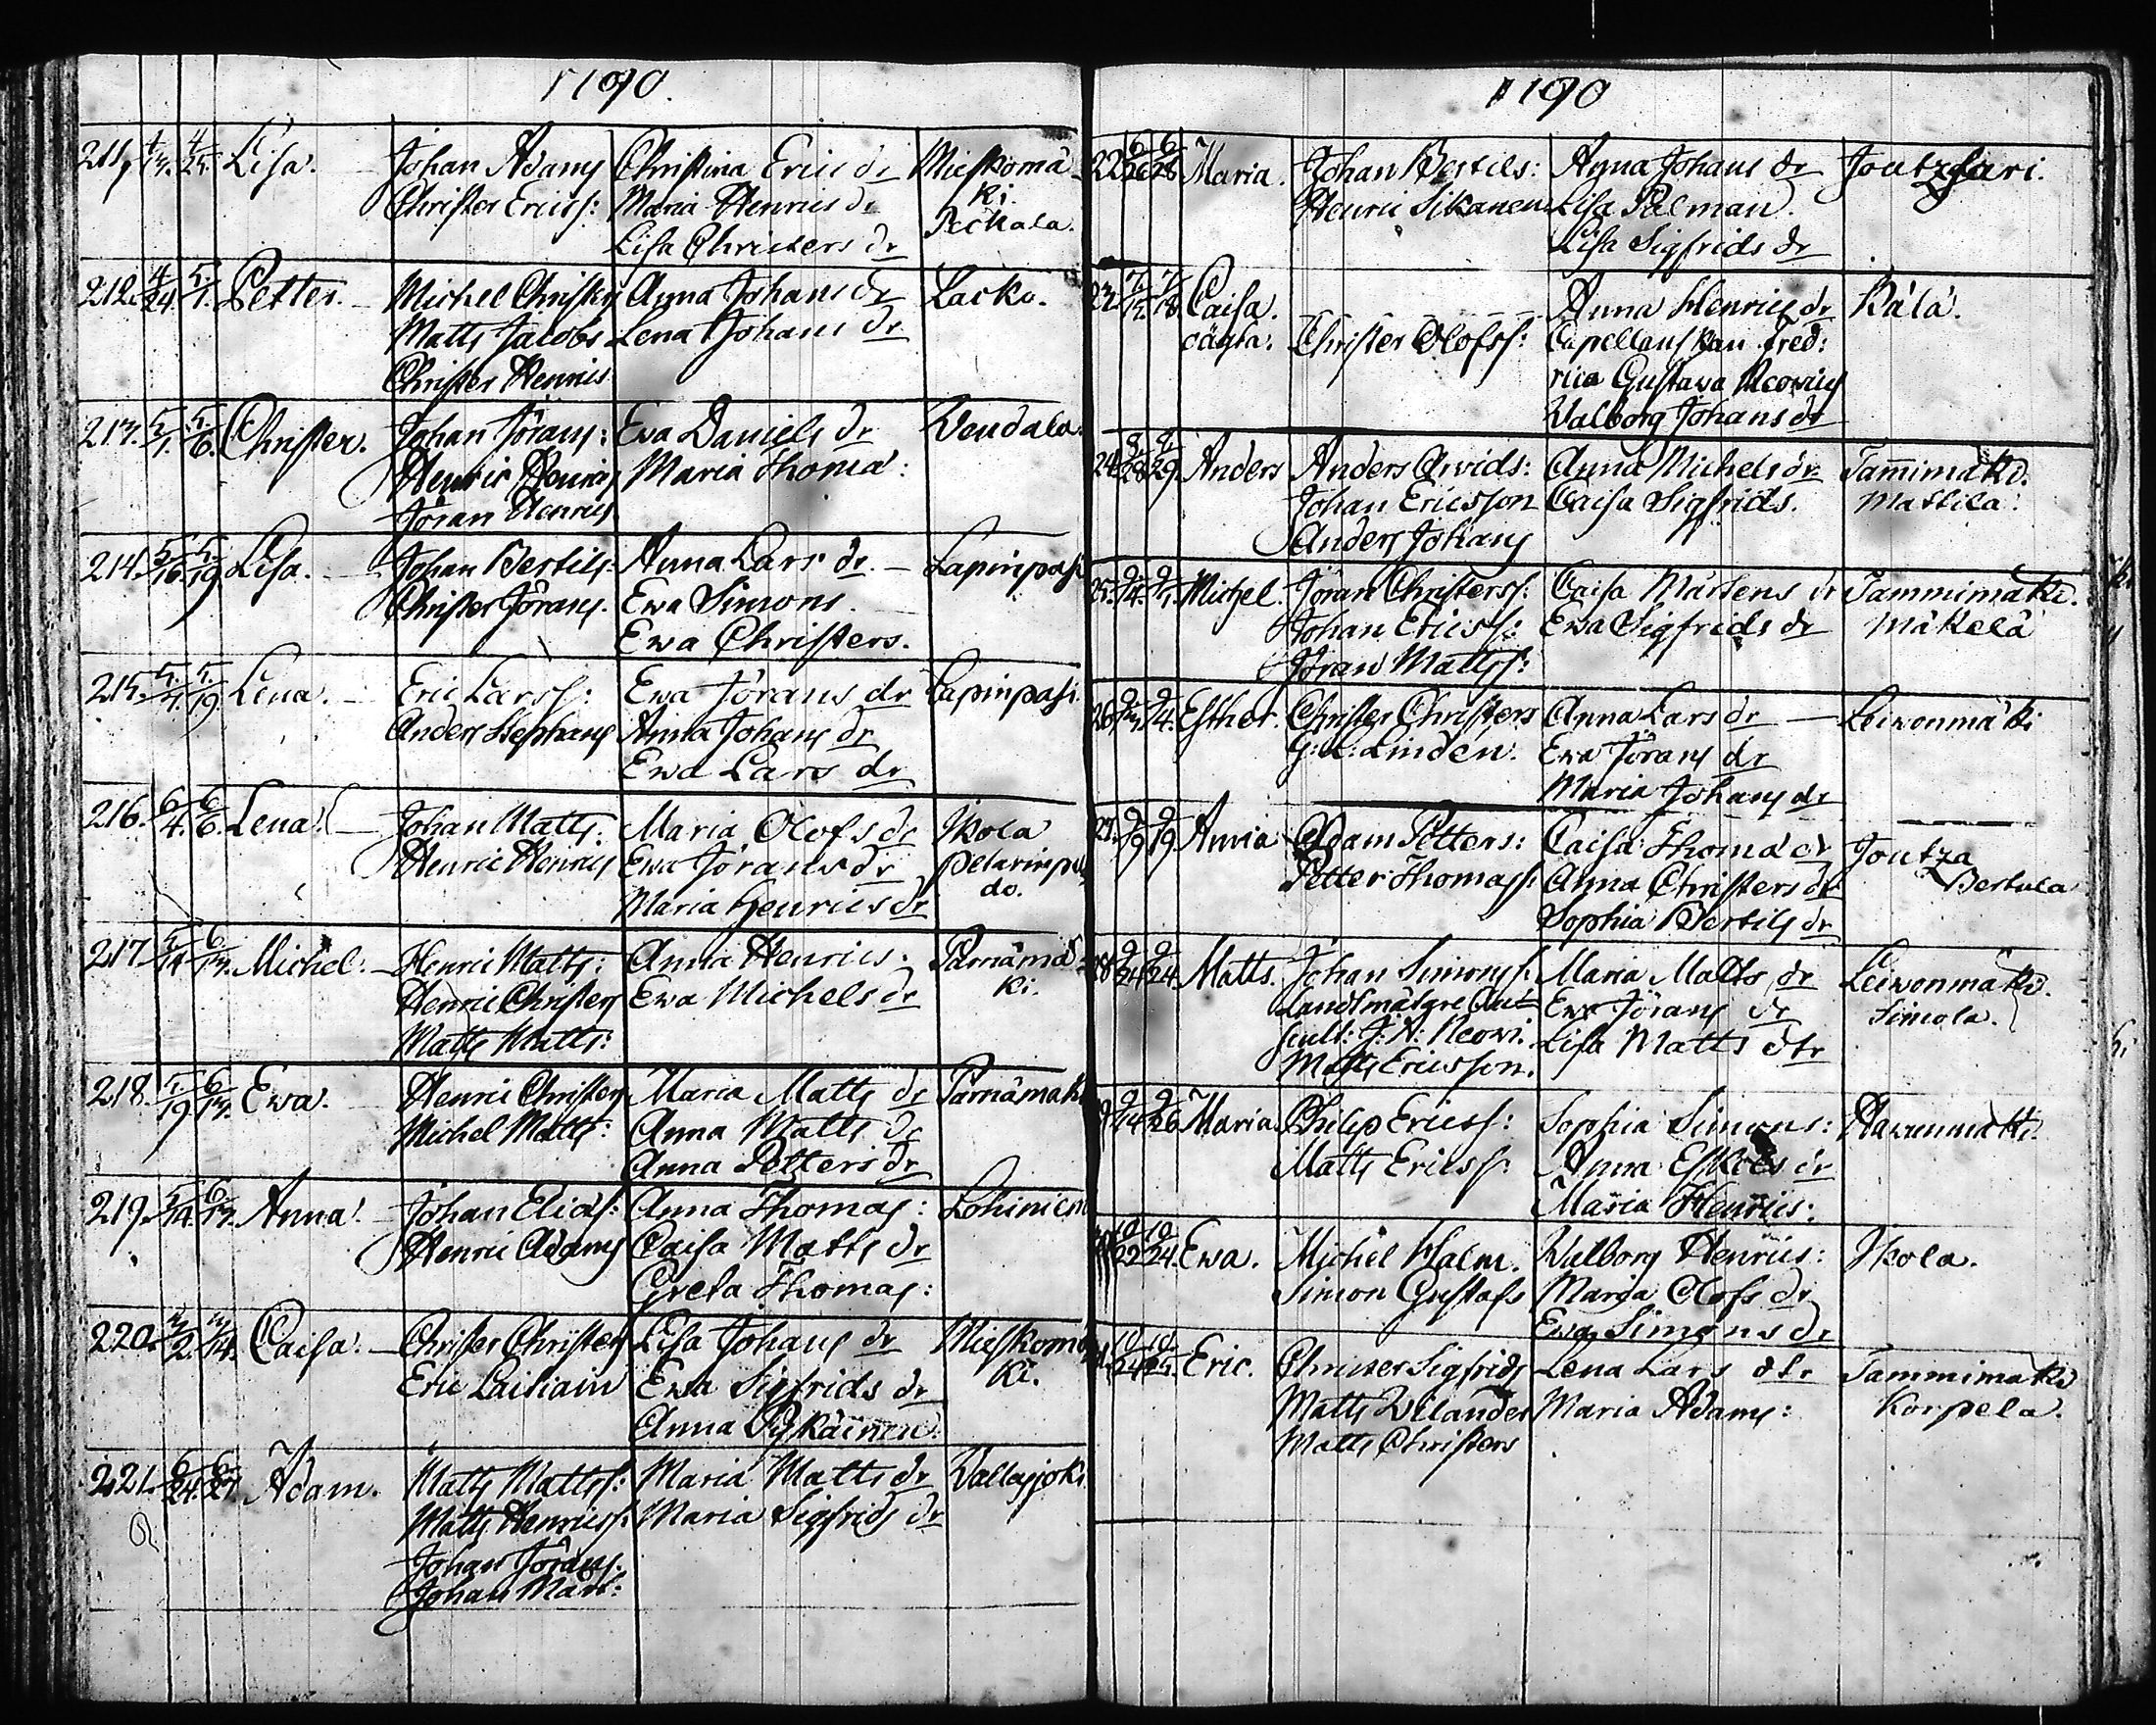 1790.
211. 4/17. 4/25. Lisa. Johan Adams Christina Erics dr Mieskomä
Christer Ericss: Maria Henrics dr ki.
Lisa Christers dr Peckala.
212. 4/24. 5/1. Petter. Michel Christers Anna Johans dr Lacko.
Matts Jacobs Lena Johans dr
Christer Henrics
213. 5/1. 5/6. Christer. Johan Jörans: Ewa Daniels dr Wendala.
Henric Henrics Maria Thomá:
Jöran Henrics
214. 5/16 5/19 Lisa. Johan Bertils: Anna Lars dr. Lapinpasi
Christer Jörans. Ewa Simons.
Ewa Christers.
215. 5/4. 5/19 Lena. Eric Larss: Ewa Jörans dr Lapinpasi.
Anders Stephans Anna Johans dr
Ewa Lars dr
216. 6/4. 6/6. Lena. Johan Matts: Maria Olofs dr Ikola
Henric Henrics Ewa Jörans dr
Maria Henrics dr do.
217 5/14 6/13. Michel. Henric Matts: Anna Henrics. Pärnämä
Henric Christers Ewa Michels dr ki.
Matts Matts:
218. 5/19 6/13. Ewa. Henric Christers Maria Matts dr Pärnämäki
Michel Matts: Anna Matts dr
Anna Petters dr
219. 5/14. 6/13. Anna. Johan Elias: Anna Thomas: Lohiniem
Henric Adams Caisa Matts dr
Greta Thomas:
220. 3/2. 3/14. Caisa. Christer Christers Lisa Johans dr Mieskomä
Eric Laitiain Ewa Sigfrids dr ki.
Anna Pykäinen.
221. 6/24. 6/27 Adam. Matts Mattss: Maria Matts dr Wallasjoki
Matts Henricss: Maria Sigfrids dr
Johan Jörans:
Johan Mart:
1790
22 6/26 6/28 Maria. Johan Bertils: Anna Johans dr Joutzsari.
Henric Sikanen Lisa Palman.
Lisa Sigfrids dr
23. 7/12 7/18. Caisa. Anna Henrics dr Kälä.
oägta. Christer Olofss: Capellanskan Fred:
rica Gustava Neovius
Walborg Johans dr
24 8/28 8/29. Anders Anders Arvids: Anna Michels dr Tam̄imäki.
Johan Ericsson Caisa Sigfrids. Mattila.
Anders Johans
25. 9/4. 9/5. Michel. Jöran Christerss: Caisa Mårtens dr Tammimäki.
Johan Ericss: Ewa Sigfrids dr Mäkelä
Jöran Mattss:
26 9/3 9/4. Esther. Christer Christers Anna Lars dr Leiwonmäki
G: L: Lindén. Ewa Jörans dr
Maria Johans dr
27. 9/9 9/19 Anna Adam Petters: Caisa Thomá dr Joutza
Petter Thomass: Anna Christers dr Bertula
Sophia Bertils dr
28 9/24 9/24. Matts. Johan Simonss: Maria Matts dr Leiwonmäki.
Landtmätare Aus= Ewa Jörans dr Simola.
cult: J: A: Neovi. Lisa Matts dtr
Matts Ericsson.
9/14 9/26 Maria. Philip Ericss: Sophia Simons: Hawunmäki.
Matts Ericss: Anna Eskils dr
Maria Henrics:
10/22 10/24. Ewa. Michel Halm. Walborg Henrics: Ikola.
Simon Gustafs Maria Olofs dr
Ewa Simons dr
10/24 10/25. Eric. Christer Sigfrids Lena Lars dtr Tammimäki
Matts Welander Maria Adams: Korpela.
Matts Christers